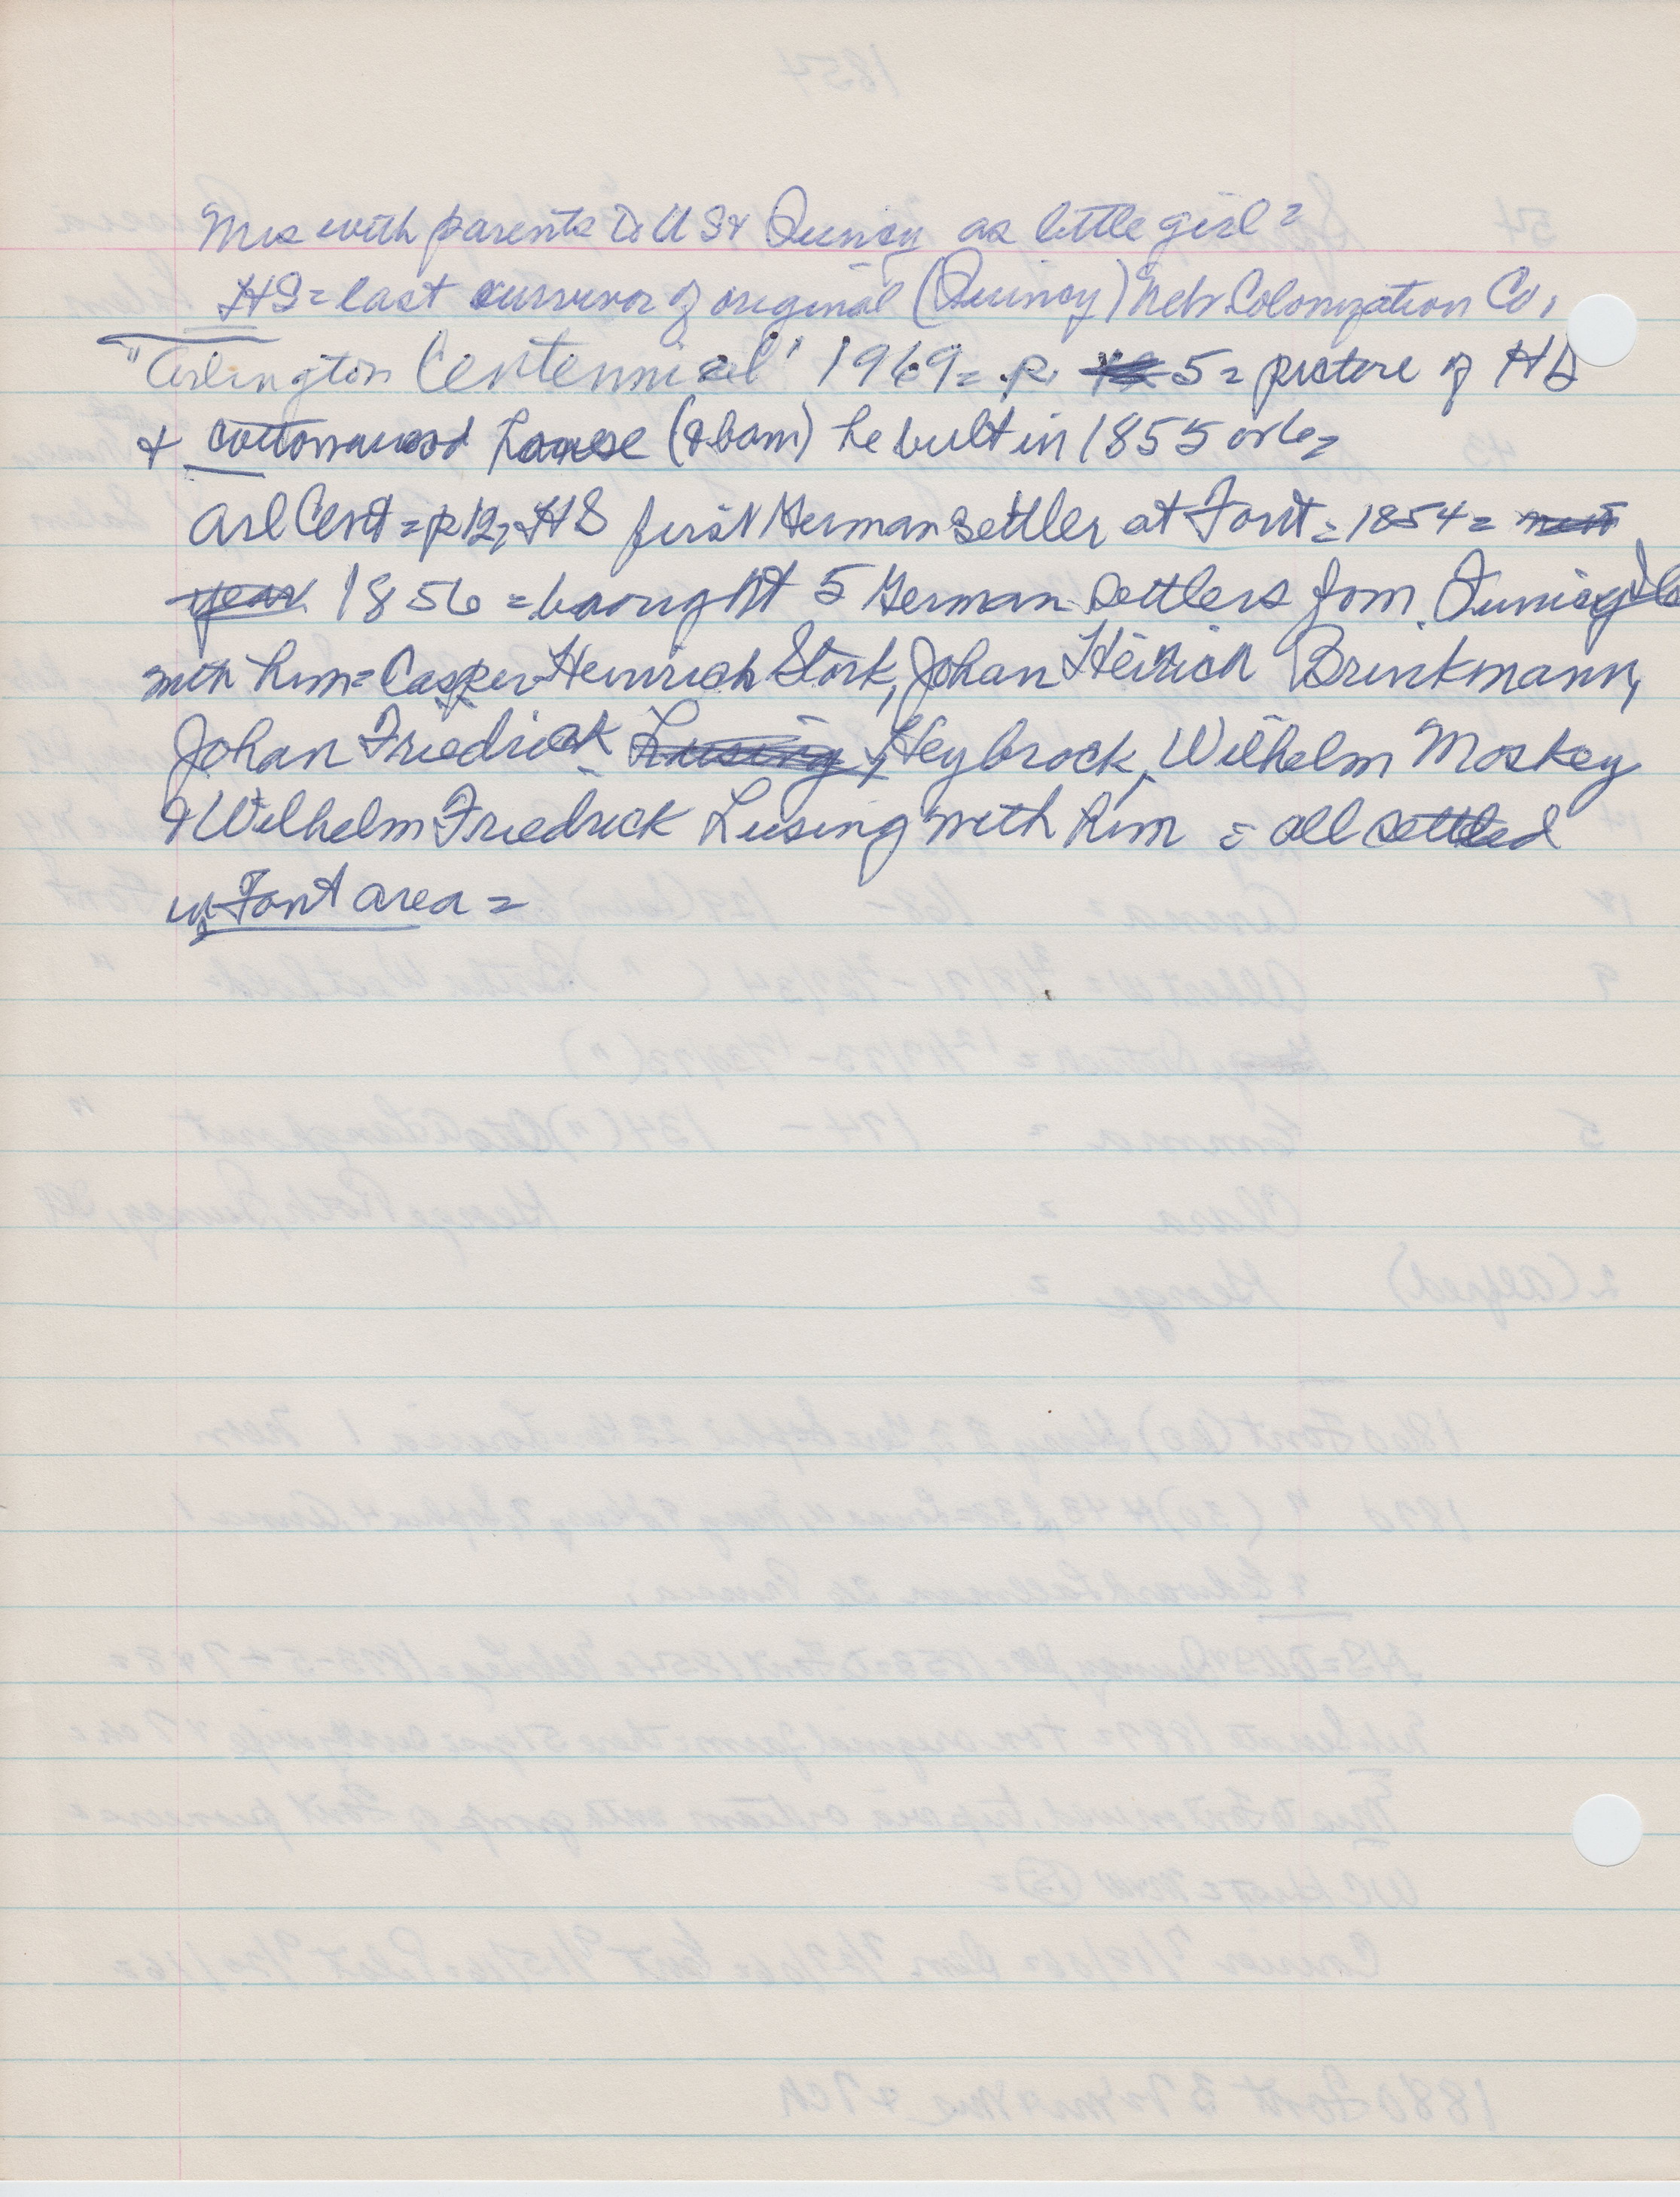 Mrs with parents to US & Quincy as little girl =
HS = last survivor of original (Quincy) Neb Colonization Co,
"Arlington Centennial" 1969 = p. 5 = picture of HS
& cottonwood house (& barn) he built in 1855 or 6 =
Arl Cent = p 12, HS first German settler at Font = 1854 = next
year 1856 = brought 5 German settlers from Quincy Ill
with him = Casper Heinrich Stork, Johan Heinrich Brinkmann,
Johan Friedrick Lusing, Heybrock, Wilhelm Moskey
& Wilhelm Friedrick Lusing with him = all settled
in Font area =